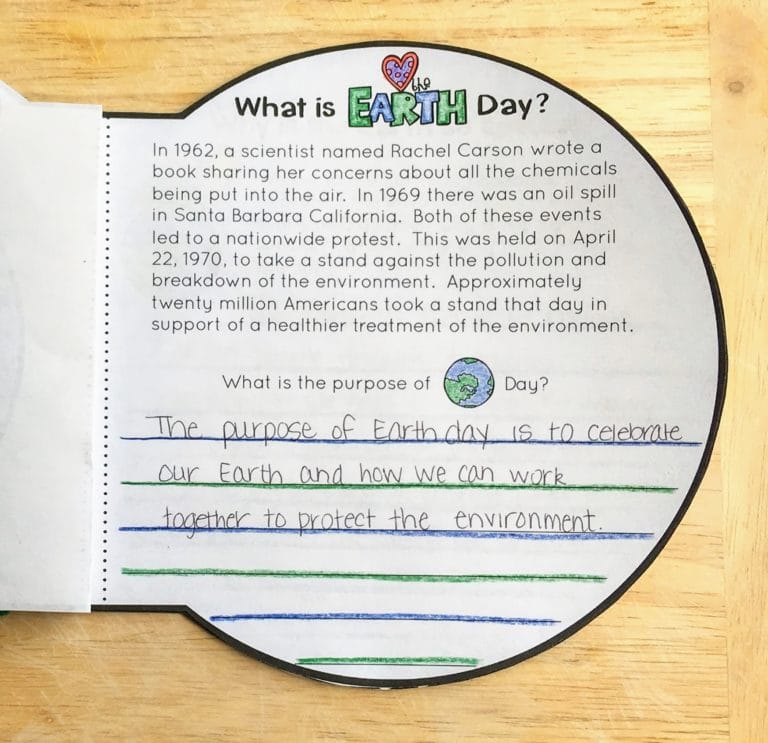 What is the EARTH Day?
In 1962, a scientist named Rachel Carson wrote a
book sharing her concerns about all the chemicals
being put into the air. In 1969 there was an oil spill
in Santa Barbara California. Both of these events
led to a nationwide protest. This was held on April
22, 1970, to take a stand against the pollution and
breakdown of the environment. Approximately
twenty million Americans took a stand that day in
support of a healthier treatment of the environment.
What is the purpose of Day?
The purpose of Earth day is to celebrate
our Earth and how we can work
together to protect the environment.